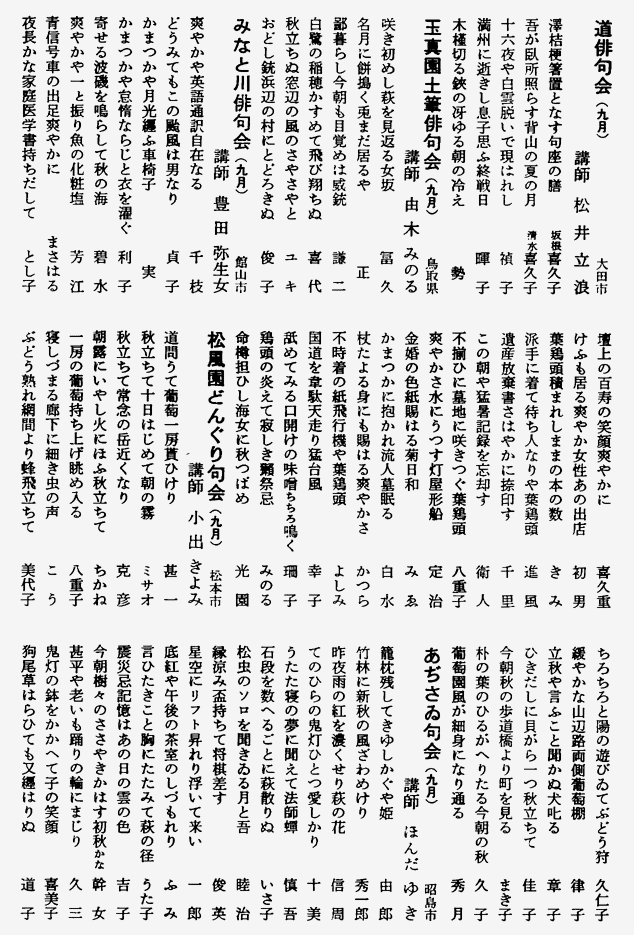 道俳句会（九月）
大田市
講師 松井立浪
澤桔梗箸置となす句座の膳 坂根喜久子
吾が臥所照らす背山の夏の月 清水喜久子
十六夜や白雲脱いで現はれし 禎子
満州に逝きし息子思ふ終戦日 暉子
木槿切る鋏の冴ゆる朝の冷え 勢
玉真園土筆俳句会（九月）
鳥取県
講師 由木みのる
咲き初めし萩を見返る女坂 冨久
名月に餅搗く兎まだ居るや 正
鄙暮らし今朝も目覚めは威銃 謙二
白鷺の稲穂かすめて飛び翔ちぬ 喜代
秋立ちぬ窓辺の風のさやさやと ユキ
おどし銃浜辺の村にとどろきぬ 俊子
みなと川俳句会（九月）
館山市
講師 豊田弥生女
爽やかや英語通訳自在なる 千枝
どうみてもこの颱風は男なり 貞子
かまつかや月光纏ふ車椅子 実
かまつかや怠惰ならじと衣を濯ぐ 利子
寄せる波磯を鳴らして秋の海 碧水
爽やかや一と振り魚の化粧塩 芳江
青信号車の出足爽やかに まさはる
夜長かな家庭医学書持ちだして とし子
壇上の百寿の笑顔爽やかに 喜久重
けふも居る爽やか女性あの出店 初男
葉鶏頭積まれしままの本の数 きみ
派手に着て待ち人なりや葉鶏頭 進風
遺産放棄書さはやかに捺印す 千里
この朝や猛暑記録を忘却す 衛人
不揃ひに墓地に咲きつぐ葉鶏頭 八重子
爽やかさ水にうつす灯屋形船 定治
金婚の色紙賜はる菊日和 みゑ
かまつかに抱かれ流人墓眠る 白水
杖たよる身にも賜はる爽やかさ かつら
不時着の紙飛行機や葉鶏頭 よしみ
国道を韋駄天走り猛台風 幸子
舐めてみる口開けの味噌ちちろ鳴く 珊子
鶏頭の炎えて寂しき獺祭忌 みのる
命樽担ひし海女に秋つばめ 光園
松風園どんぐり句会（九月）
松本市
講師 小出きよみ
道問うて葡萄一房貰ひけり 甚一
秋立ちて十日はじめて朝の霧 ミサオ
秋立ちて常念の岳近くなり 克彦
朝露にいやし火にほふ秋立ちて ちかね
一房の葡萄持ち上げ眺め入る 八重子
寝しづまる廊下に細き虫の声 こう
ぶどう熟れ網間より蜂飛立ちて 美代子
ちろちろと陽の遊びゐてぶどう狩 久仁子
緩やかな山辺路両側葡萄棚 律子
立秋や言ふこと聞かぬ犬叱る 章子
ひきだしに貝がら一つ秋立ちて 佳子
今朝秋の歩道橋より町を見る まき子
朴の葉のひるがへりたる今朝の秋 久子
葡萄園風が細身になり通る 秀月
あぢさゐ句会（九月）
昭島市
講師 ほんだゆき
籠枕残してきゆしかぐや姫 由郎
竹林に新秋の風ざわめけり 秀一郎
昨夜雨の紅を濃くせり萩の花 信周
てのひらの鬼灯ひとつ愛しかり 十美
うたた寝の夢に聞えて法師蟬 慎吾
石段を数へるごとに萩散りぬ いさ子
松虫のソロを聞きゐる月と吾 睦治
縁涼み盃持ちて将棋差す 俊英
星空にリフト昇れり浮いて来い 一郎
底紅や午後の茶室のしづもれり ふみ
言ひたきこと胸にたたみて萩の径 うた子
震災忌記憶はあの日の雲の色 吉子
今朝樹々のささやきかはす初秋かな 幹女
甚平や老いも踊りの輪にまじり 久三
鬼灯の鉢をかかへて子の笑顔 喜美子
狗尾草はらひても又纏はりぬ 道子